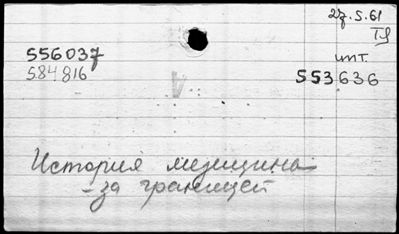 27.5.61
556037
584816
инт.
553636
История медицина
- за границей